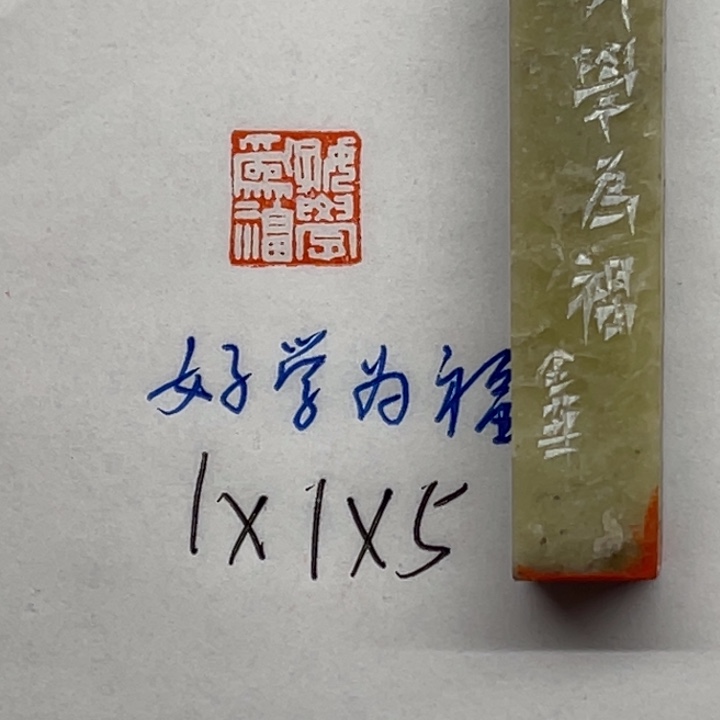 好學為福
好学为福
1X1X5
學為福